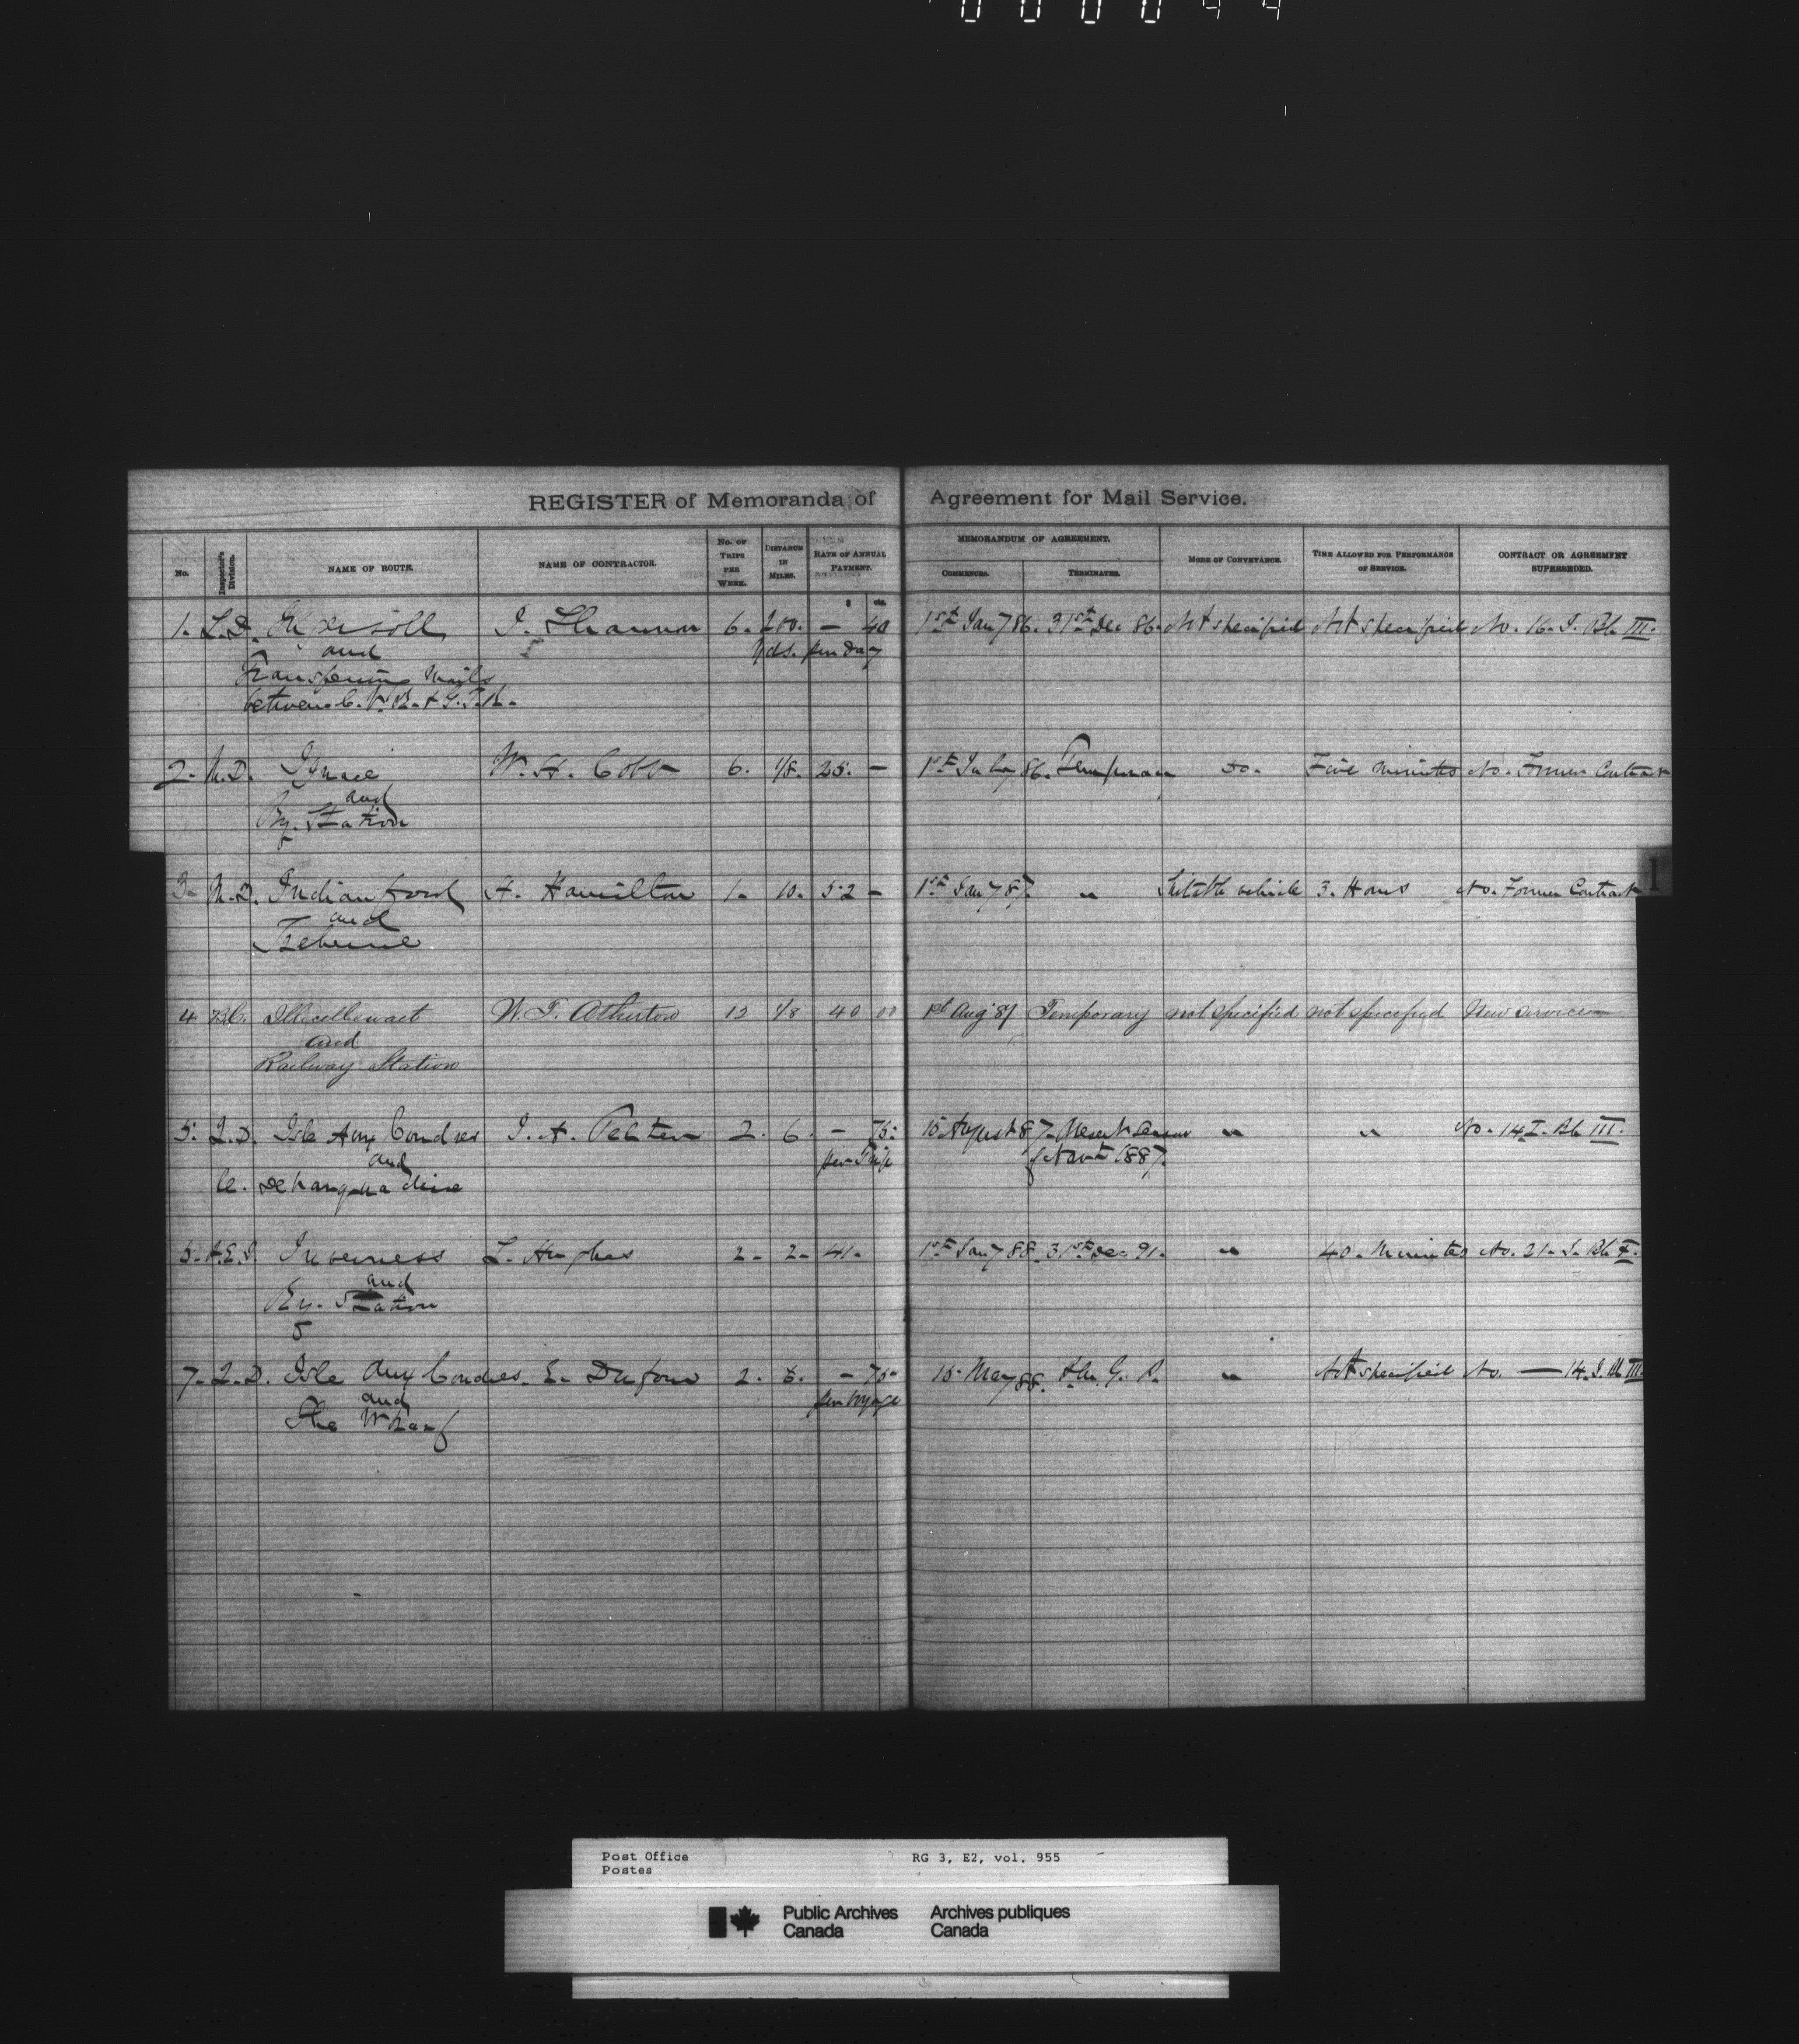 REGISTER of Memoranda of Agreement for Mail Service.
No. Inspector's Division. NAME OF ROUTE. NAME OF CONTRACTOR. No. OF TRIPS PER WEEK. DISTANCE IN MILES. RATE OF ANNUAL PAYMENT. MEMORANDUM OF AGREEMENT. COMMENCES. TERMINATES. MODE OF CONVEYANCE. TIME ALLOWED FOR PERFORMANCE OF SERVICE. CONTRACT OR AGREEMENT SUPERSEDED.
1. L.D. Ingersoll I. Shannon 6. 200. — 40 1st Jany 86. 31st Dec 86. Not specified Not specified No. 16. I. Bk III.
and yds. per day
Transferring mails
between C.V.R. & G.T.R.
2. M.D. Ignace W. H. Cobb 6. 1/8. 25. — 1st July 86. Temporary Do. Five minutes No. Former Contract
and
Ry. Station
3. M.D. Indianford H. Hamilton 1. 10. 52 — 1st Jany 87. " Suitable vehicle 3. Hours No. Former Contract
and
Treherne
4 B.C. Illecillewaet W. T. Atherton 12 1/8 40 00 1st Aug 87 Temporary not specified not specified New service
and
Railway Station
5. Q.D. Isle Aux Coudres 2. 6. — 75. 15 August 87. " " No. 14 I. Bk III.
and per Trip of Navtn 1887.
5. P.E.I. Inverness L. Hughes 2. 2. 41. 1st Jany 88. 31st Dec 91. " 40. Minutes No. 21. I. Bk
and
Ry. Station
7. Q.D. Isle Aux Coudres. E. Dufour 2. — 75. 15. May 88. " Not specified No. — 14. I. Bk III
and per voyage
The Wharf
I
Post Office RG 3, E2, vol. 955
Postes
Public Archives Archives publiques
Canada Canada